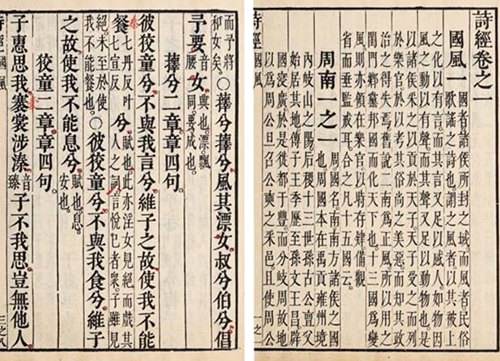 詩經卷之一
國風一
國者諸侯所封之域而風者民俗
歌謠之詩也謂之風者以其被上
之化以有言而其言又足以感人如物因
風之動以有聲而其聲又足以動物也是
以諸侯采之以貢於天子天子受之而列
於樂官於以考其俗尚之美惡而知其政
治之得失焉舊說二南為正風所以用之
閨門鄉黨邦國而化天下也十三國為變
風則亦領在樂官以時存肄備觀
省而垂監戒耳合之凡十五國云
周南一之一
周國名南南方諸侯之國
也周國本在禹貢雍州境
內岐山之陽后稷十三世孫古公亶父
始居其地傳子王季歷至孫文王昌辟
國寖廣於是徙都于豐而分岐周故地
以為周公旦召公奭之采邑且使周公
詩經 國風
而予將和女矣。○蘀兮蘀兮風其漂女叔兮伯兮倡
予要女 興也漂飄同要成也
蘀兮二章章四句
彼狡童兮不與我言兮維子之故使我不能
餐七丹反叶七宣反兮賦也此亦淫女見絕而戲其人之詞言悅己者眾子雖見
絕未至於使我不能餐也。○彼狡童兮不與我食兮維子
之故使我不能息兮賦也息安也
狡童二章章四句
子惠思我褰裳涉溱音臻子不我思豈無他人
詩經 國風
三之八